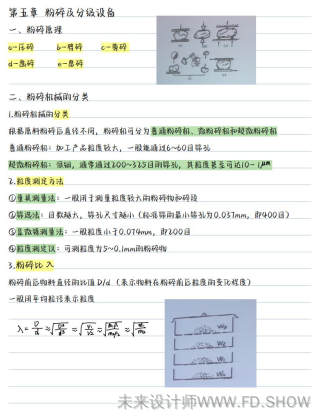 第五章 粉碎及分级设备
一、粉碎原理
a-压碎 b-劈碎 c-
d-磨碎 e-
二、粉碎机械的分类
1.粉碎机械的分类
根据原料粉碎后直径不同，粉碎机可分为普通粉碎机、微粉碎机和超微粉碎机
普通粉碎机：加工产品粒度较大，一般能通过6~60目筛孔
超微粉碎机：通常通过200~325目的筛孔，其粒度甚至可达10~1μm
2.粒度测定方法
①量具测量法：一般用于测量粒度较大的粉碎物和碎段
②筛选法：目数越大，筛孔尺寸越小（标准筛的最小筛孔为0.037mm，即400目）
③显微镜测量法：一般粒度小于0.074mm，即200目
④粒度测定仪：可测粒度为5~0.1mm的粉碎物
3.粉碎比λ
粉碎前后物料直径的比值D/d（表示物料在粉碎前后粒度的变化程度）
一般用平均粒径表示粒度
未来设计师WWW.FD.SHOW